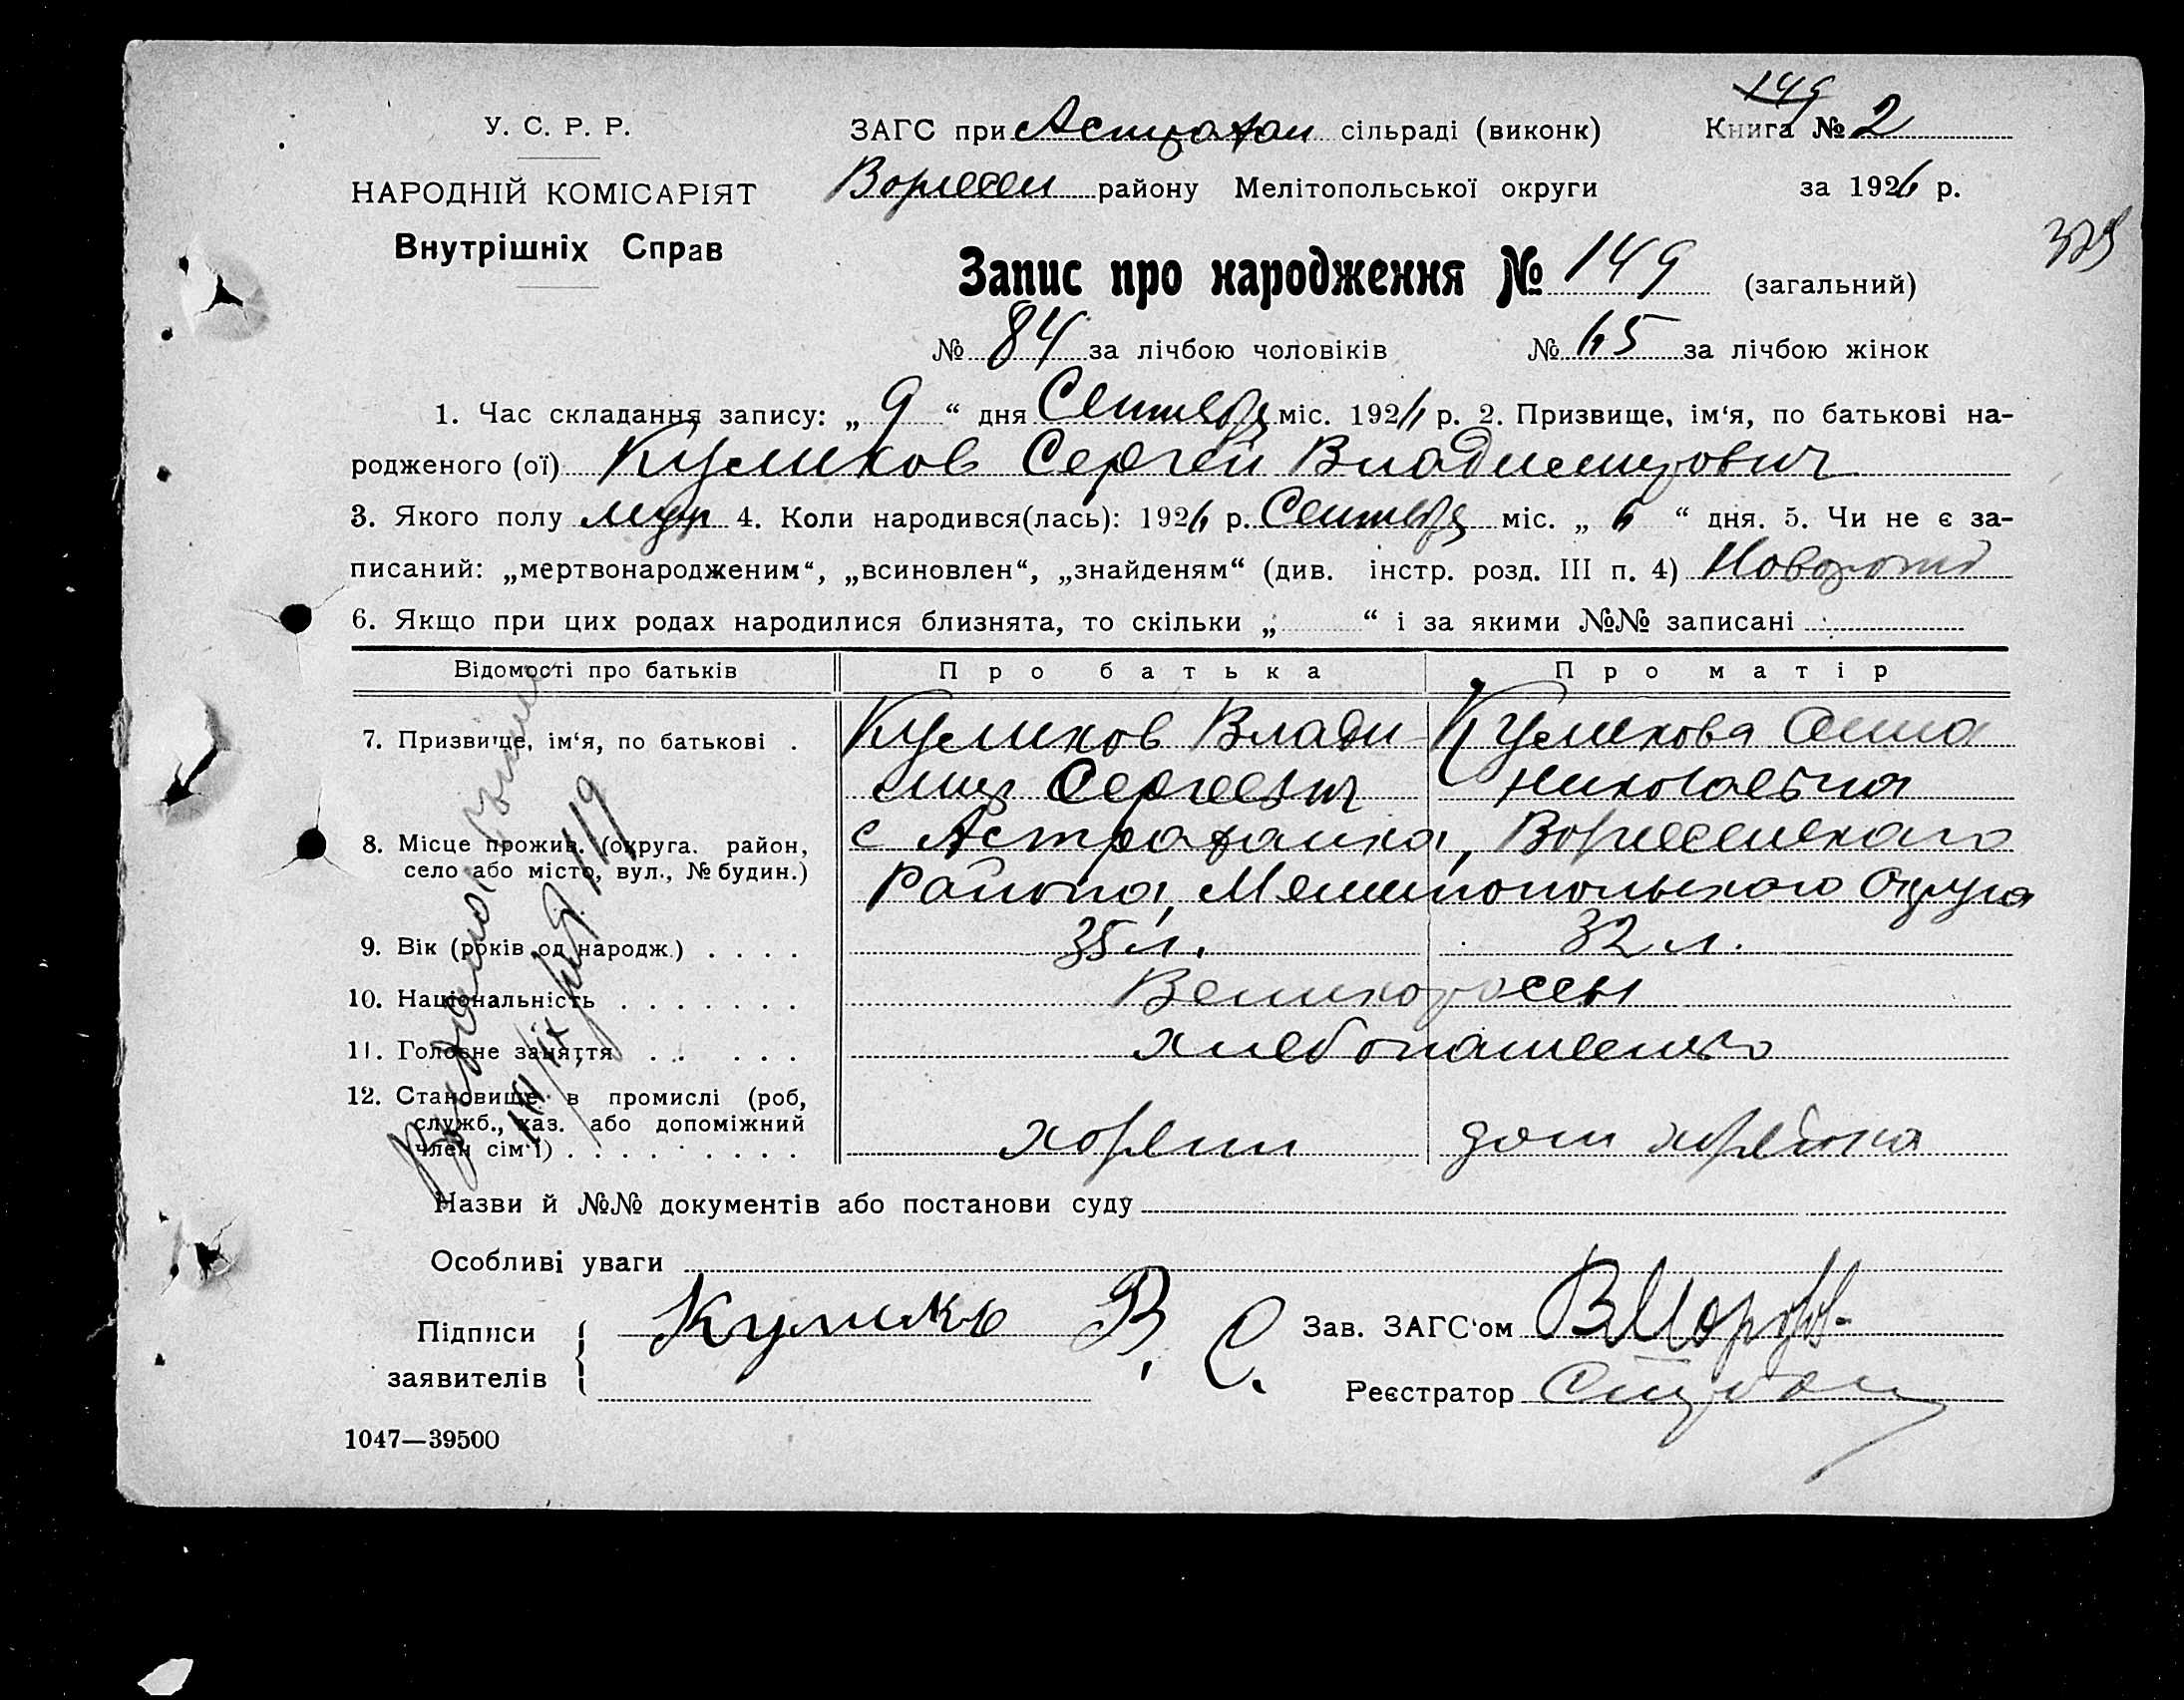 149
У. С. Р. Р.
ЗАГС при Астрахан сільраді (виконк)
Книга № 2
НАРОДНІЙ КОМІСАРІЯТ
района Мелітопольської округи
за 1926 р.
Внутрішніх Справ
Запис про народження № 149 (загальний)
№ 84 за лічбою чоловіків № 65 за лічбою жінок
1. Час складання запису: „ 9 “ дня Сентебр міс. 1926 р. 2. Призвище, ім‘я, по батькові на-
родженого (ої) Куликов Сергей Владимирович
3. Якого полу муж 4. Коли народився(лась): 1926 р. Сентебр міс. „ 6 “ дня. 5. Чи не є за-
писаний: „мертвонародженим“, „всиновлен“, „знайденям“ (див. інстр. розд. III п. 4)
6. Якщо при цих родах народилися близнята, то скільки „ “ і за якими №№ записані
Відомості про батьків
Про батька
Про матір
7. Призвище, ім‘я, по батькові .
Куликов Влади
мир Сергеевич
Куликова Анна
Николаевна
8. Місце прожив. (округа. район,
село або місто, вул., № будин.)
с Астраханка,
Района, Мелитопольского Округа
9. Вік (років од народж.) . . . .
35 л.
32 л.
10. Національність . . . . . . .
Великороссы
11. Головне заняття . . . . . .
хлебопашество
12. Становище в промислі (роб,
служб., хаз. або допоміжний
член сім‘ї) . . . . . . . . .
хозяин
дом хозяйка
Назви й №№ документів або постанови суду
Особливі уваги
Підписи
заявителів
Куликов В. С.
Зав. ЗАГС‘ом
Реєстратор
1047—39500